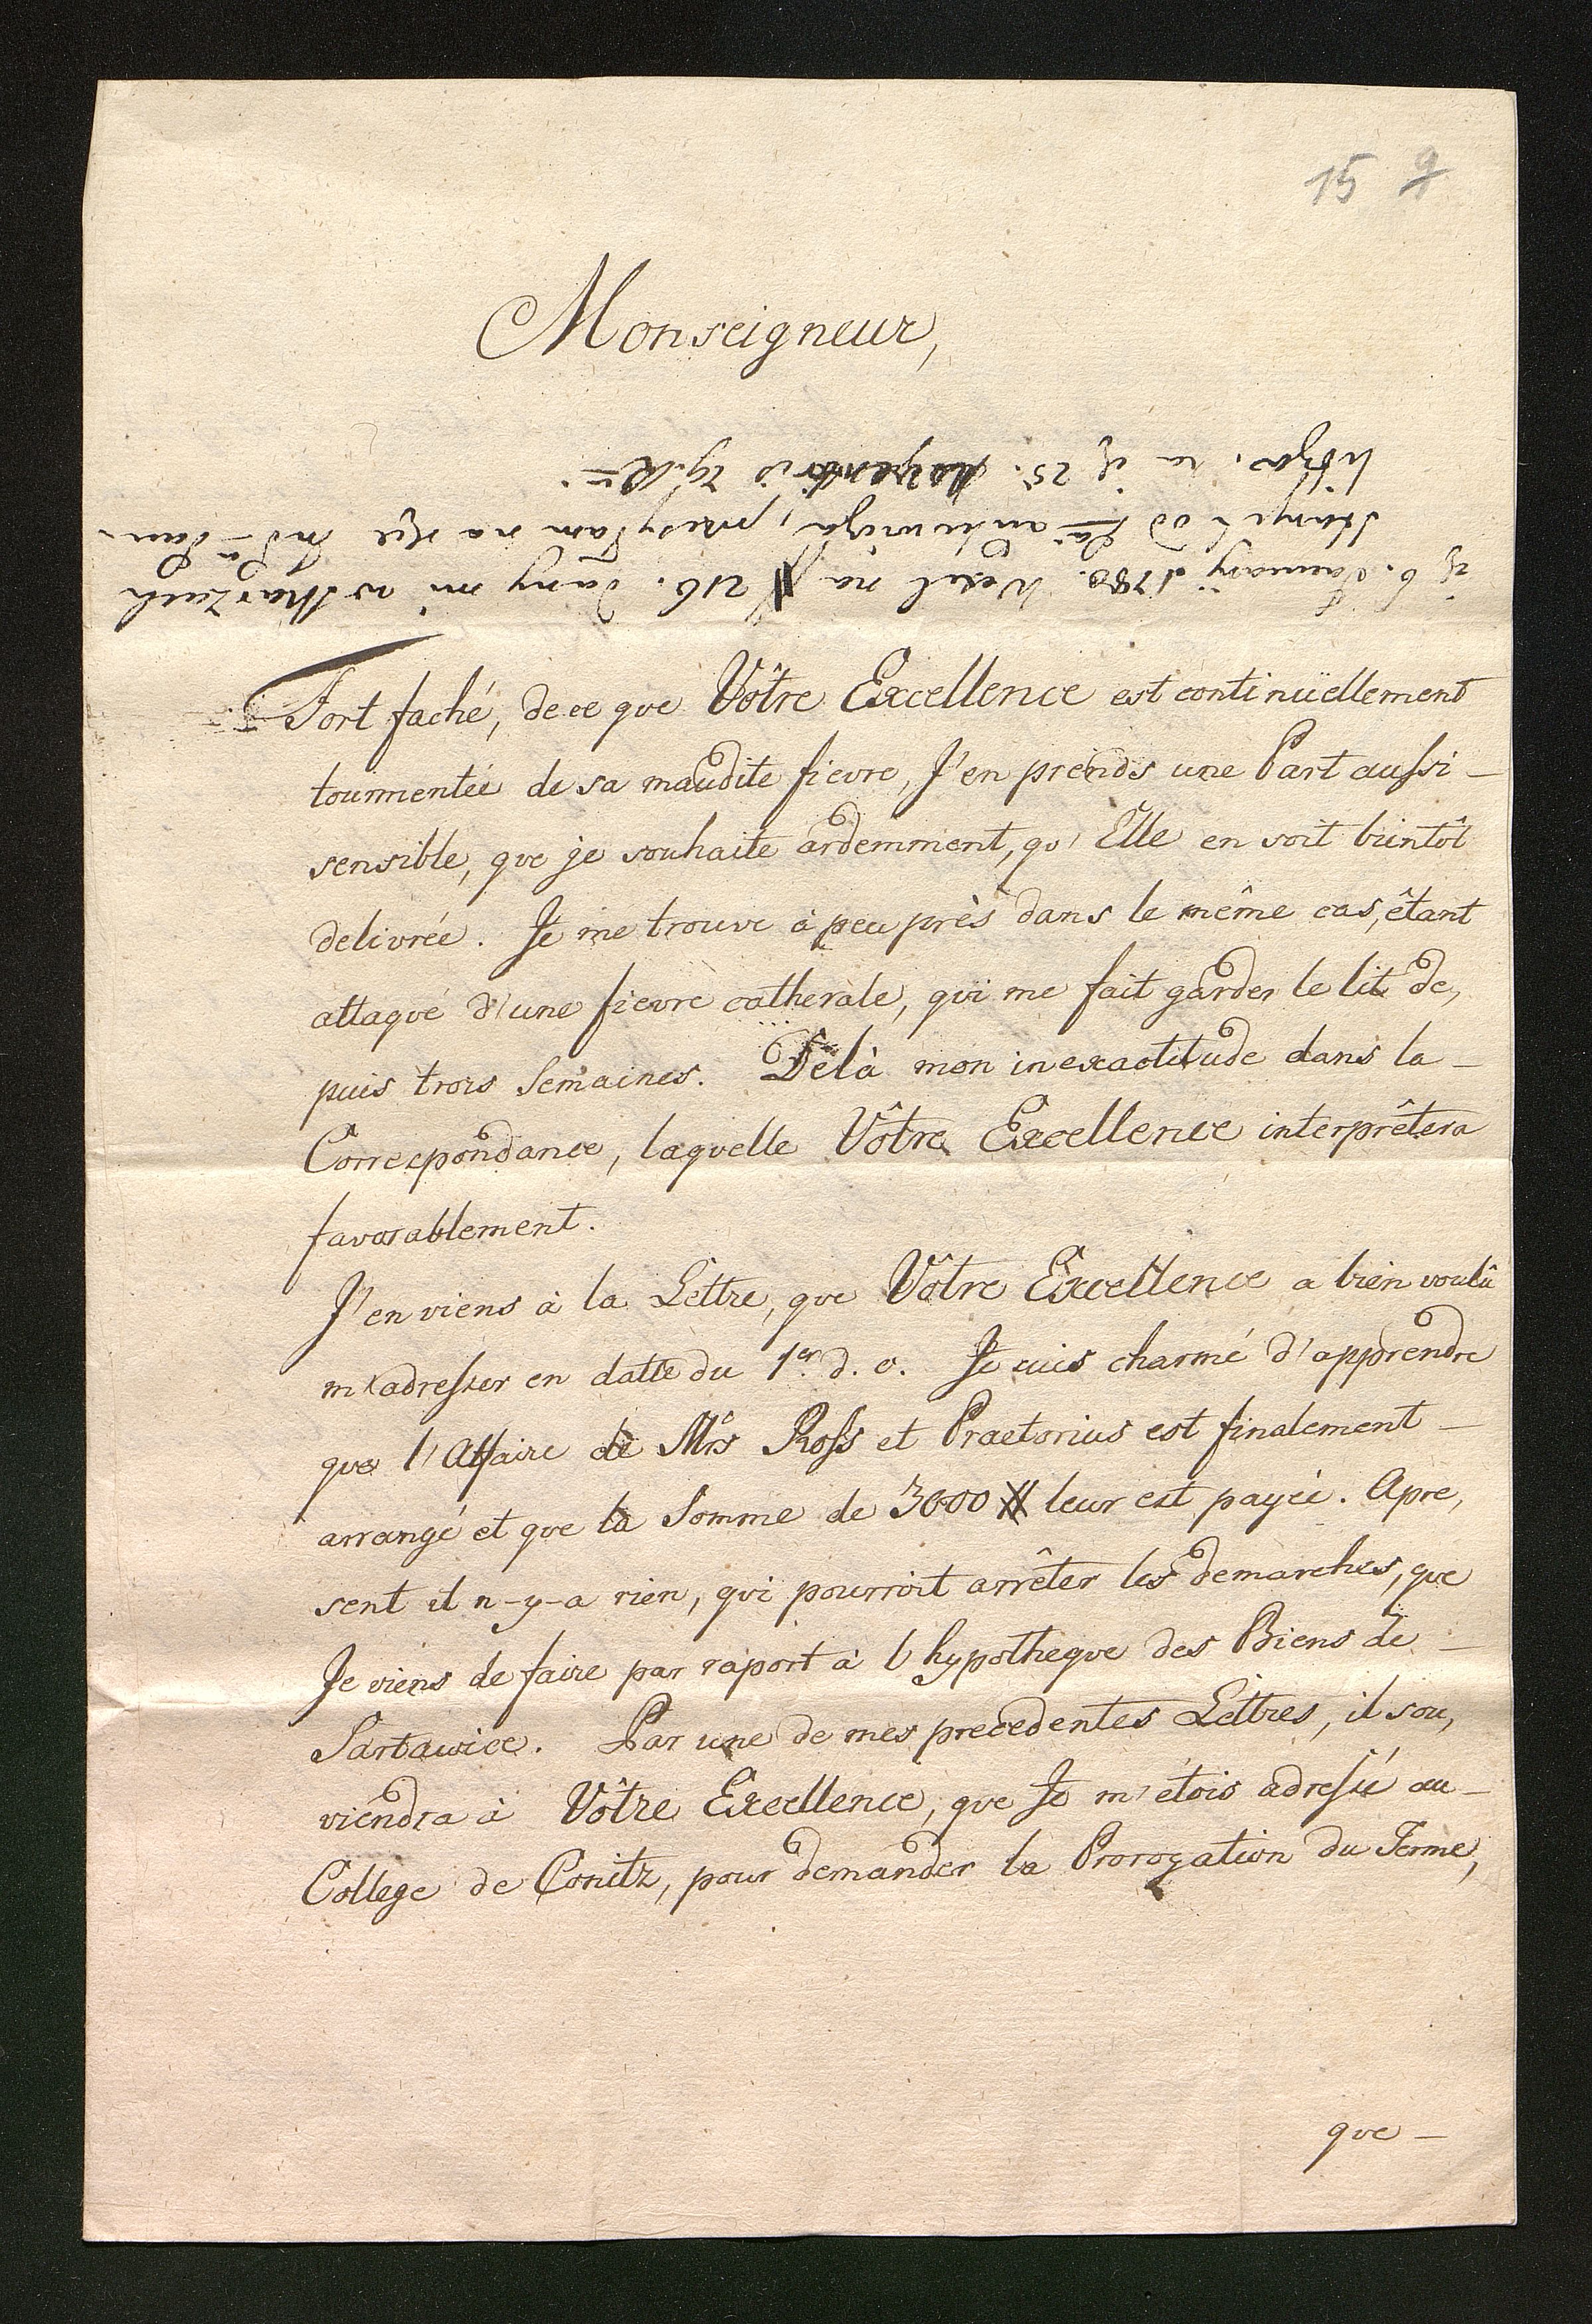 15 9
Monseigneur,
6. January 1780. Wexel na # 216. dany mi w
przesylam na
25.
Fort faché, de ce que Vôtre Excellence est continüellement
tourmentée de sa maudite fievre, J'en prends une Part aussi -
sensible, que je souhaite ardemment, qu' Elle en soit bientôt
delivrée. Je me trouve à peu près dans le même cas, êtant
attaqué d'une fievre catherale, qui me fait garder le lit de,
puis trois Semaines. Delà mon inexactitude dans la -
Correspondance, laquelle Vôtre Excellence interprêtera
favorablement.
J'en viens à la Lettre, que Vôtre Excellence a bien voulû
m'adresser en datte du 1er. d. c. Je suis charmé d'apprendre
que l'Affaire de Mrs Ross et Praetorius est finalement -
arrangé et que la Somme de 3000 # leur est payée. Apre,
sent il n-y-a rien, qui pourroit arrêter les demarches, que
Je viens de faire par raport à l'hypotheque des Biens de -
Sartawice. Par une de mes precedentes Lettres, il sou,
viendra à Vôtre Excellence, que Je m'étois adressé au -
College de Conitz, pour demander la Prorogation du Terme,
que -